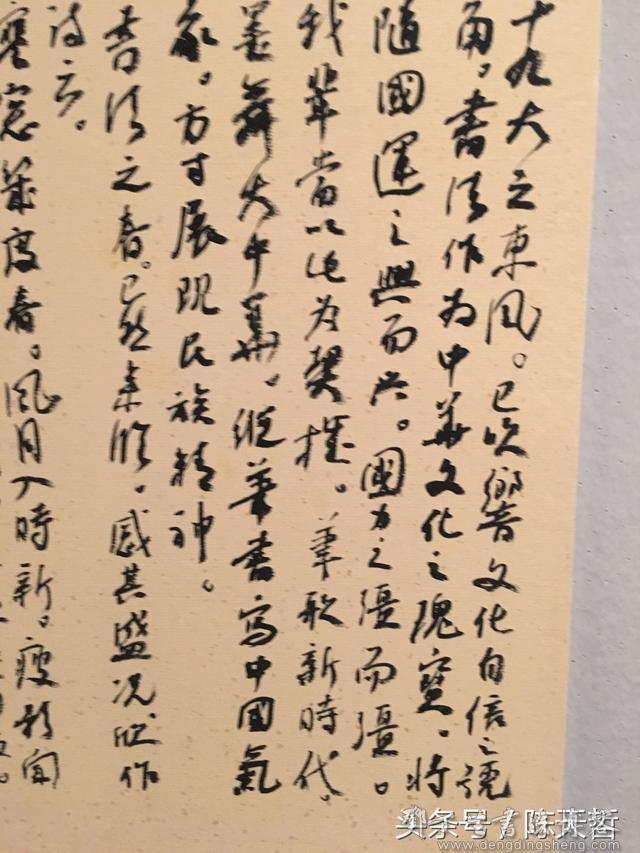 十九大之東风。已吹響文化自信之號
角。書法作为中華文化之瑰寶。将
隨國運之興而兴。國力之彊而彊。
我辈當以此为契機。筆歌新時代。
墨舞大中華。纵筆書寫中國氣
象。方寸展现民族精神。
書法之春。已然来临。感其盛况。欣作
诗云。
寒窓幾度春。風月入時新。瘦影闻
头条号
www.dengdingsheng.com